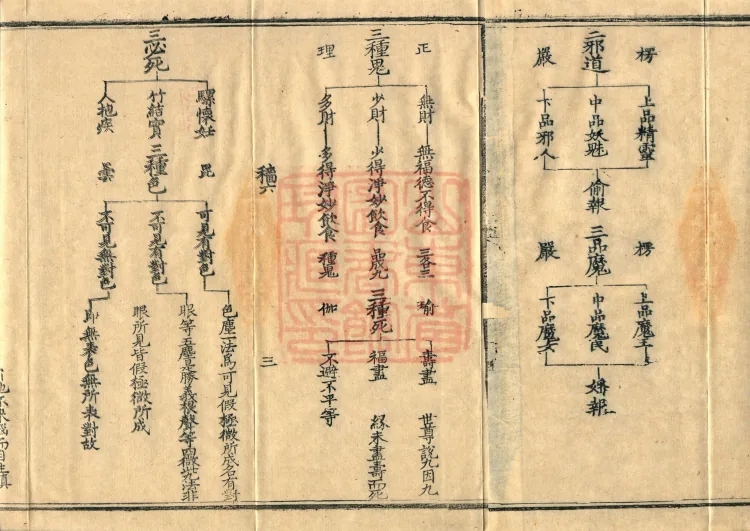 二邪道
楞
嚴
上品精靈
中品妖魅
下品邪人
偷報
三品魔
楞
嚴
上品魔王
中品魔民
下品魔女
三種鬼
正
理
無財
無福德不得食
少財
少得淨妙飲食
多財
多得淨妙飲食
三各三
品成九
種鬼
三種死
瑜
伽
壽盡
世尊說九因九
福盡
緣未盡壽而死
不避不平等
三
三必死
騾懷妊
竹結實
人抱疾
三種色
毘
曇
可見有對色
不可見有對色
不可見無對色
色塵一法為可見假極微所成名有對
眼所見皆假極微所成
即無表色無所表對故